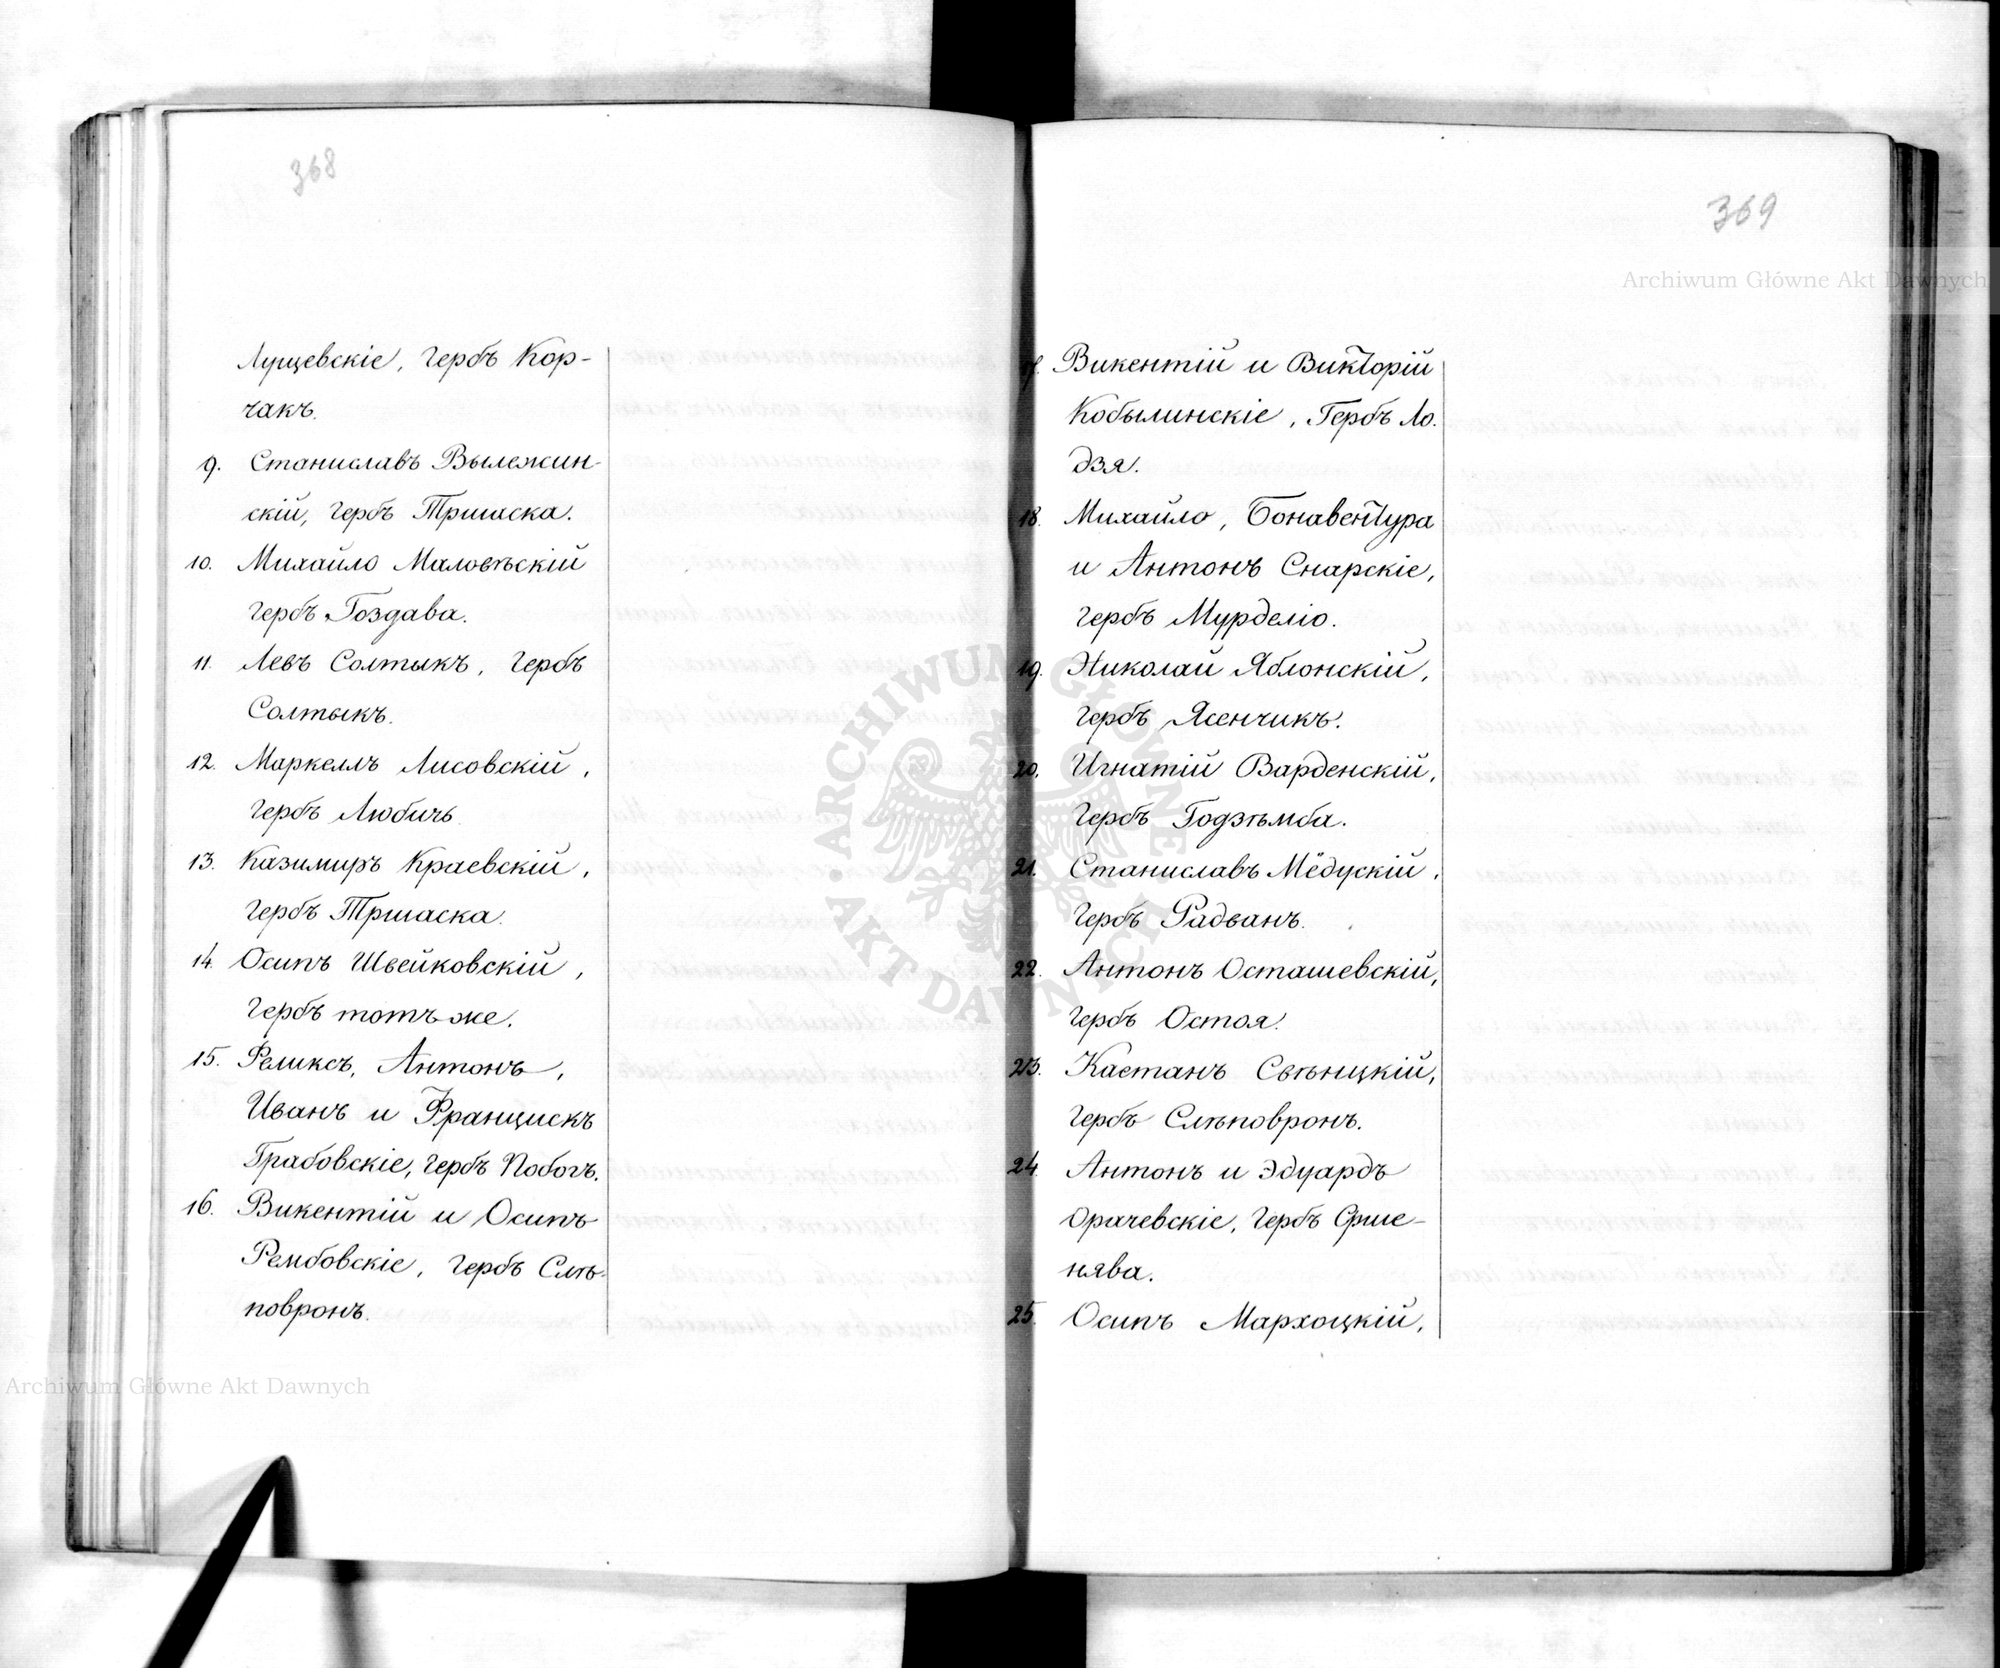 368
Лущевскіе, гербъ Кор-
чакъ.
9. Станиславъ Вылежин-
скій, гербъ Тршаска.
10. Михайло Маловѣскій
гербъ Гоздава.
11. Левъ Солтыкъ, гербъ
Солтыкъ.
12. Маркеллъ Лисовскій,
гербъ Любичь
13. Казимиръ Краевскій,
гербъ Тршаска.
14. Осипъ Швейковскій,
гербъ тотъ же.
15. Феликсъ, Антонъ,
Иванъ и Францискъ
Грабовскіе, гербъ Побогъ.
16. Викентій и Осипъ
Рембовскіе, гербъ Слѣ-
повронъ.
369
Викентій и Викторій
Кобылинскіе, Гербъ Ло-
дзя.
18. Михайло, Бонавентура
и Антонъ Снарскіе,
гербъ Мурделіо.
19. Николай Яблонскій,
гербъ Ясенчикъ.
20. Игнатій Варденскій,
гербъ Годзѣмба.
21. Станиславъ Мёдускій,
гербъ Радванъ.
22. Антонъ Осташевскій,
гербъ Остоя.
23. Каетанъ Свѣнцкій,
гербъ Слѣповронъ.
24. Антонъ и Эдуардъ
Орачевскіе, гербъ Срше-
нява.
25. Осипъ Мархоцкій,
Archiwum Główne Akt Dawnych
ARCHIWUM GŁÓWNE AKT DAWNYCH
Archiwum Główne Akt Dawnych